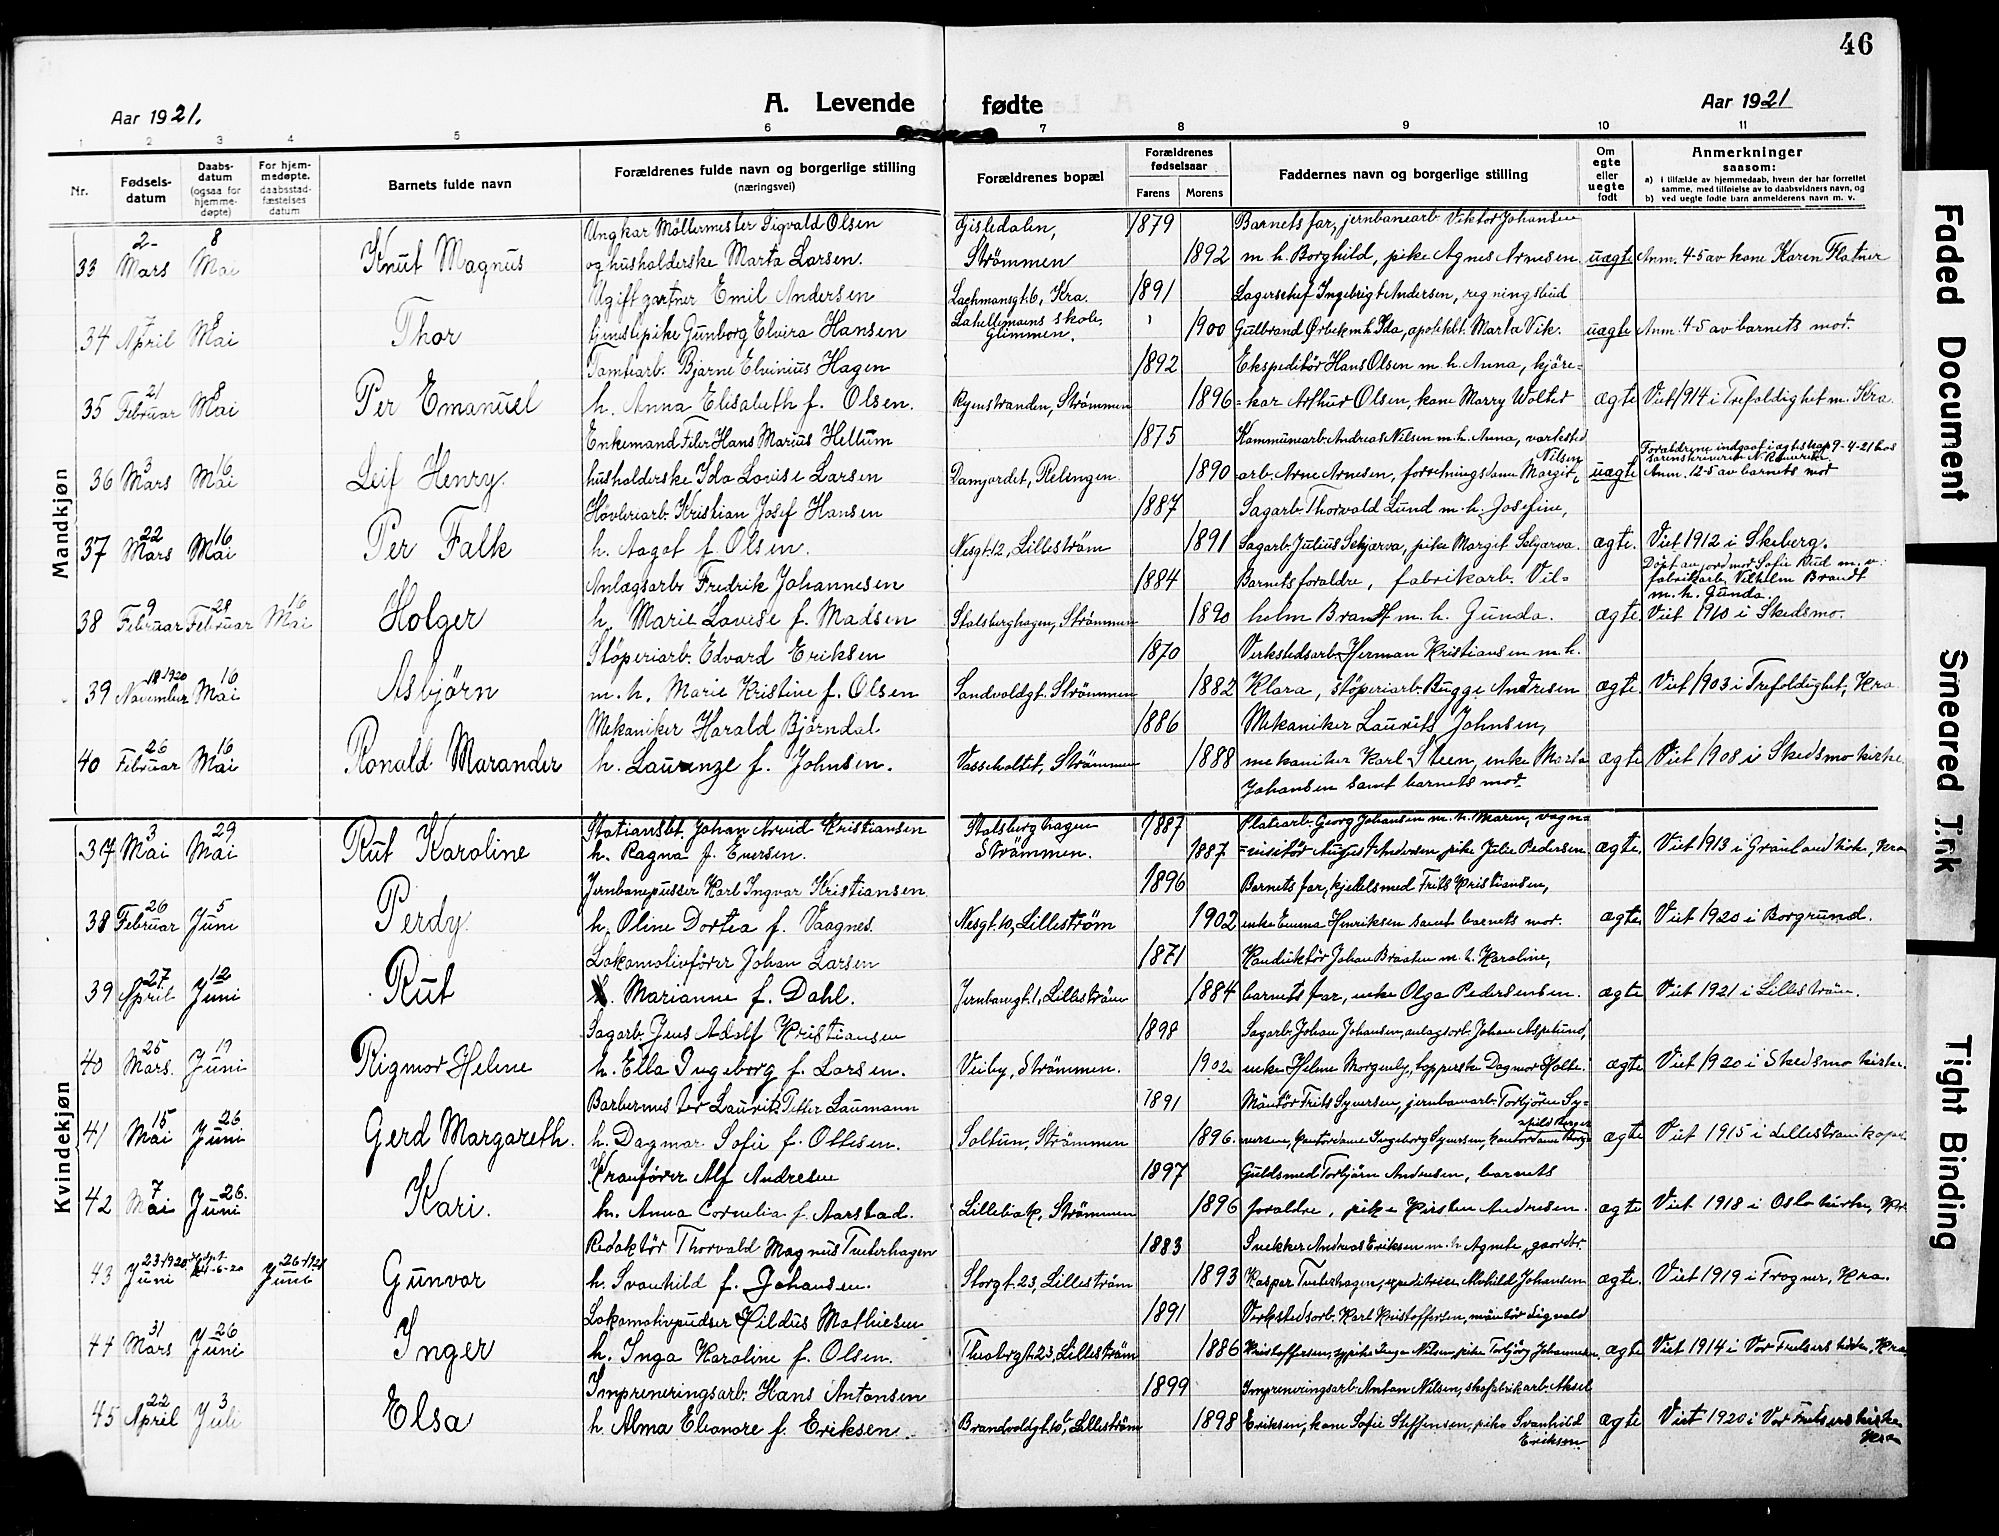 46
Aar 1921.
A. Levende fødte
Aar 1921
1 2 3 4 5 6 7 8 9 10 11
Nr.
Fødsels-
datum
Daabs-
datum
(ogsaa for
hjemme-
døpte)
For hjem-
medøpte.
daabsstad-
fæstelses
datum
Barnets fulde navn
Forældrenes fulde navn og borgerlige stilling
(næringsvei)
Forældrenes bopæl
Forældrenes
fødselsaar
Farens Morens
Faddernes navn og borgerlige stilling
Om
egte
eller
uegte
født
Anmerkninger
saasom:
a) i tilfælde av hjemmedaab, hvem der har forrettet
samme, med tilføielse av to daabsvidners navn, og
b) ved uegte fødte barn anmelderens navn m. v.
Mandkjøn
2- 8 Ungkar Möllermester Sigvald Olsen Gisledalen, 1879 Barnets far, jernbanearb Viktor Johansen
33 Mars Mai Knut Magnus og husholderske Marta Larsen. Strömmen 1892 m. h. Borghild, pike Agnes Arnesen uægte Anm. 4-5 av kone Karen Flatner
7 8 Ugift gartner Emil Andersen Lachmansgt. 6, Kra. 1891 Lagerschef Ingebrigt Andersen, regningsbud
34 April Mai Thor Tjenestepike Gunborg Elvira Hansen skole, Glimmen. 1900 Gulbrand Ørbek m. h. Ida, Marta Vik. uægte Anm. 4-5 av barnets mor.
21 8 Tomtearb. Bjarne Elvinius Hagen 1892 Ekspeditör Hans Olsen m. h. Anna, kjöre=
35 Februar Mai Per Emanuel h. Anna Elisabeth f. Olsen. Ryenstranden, Strömmen 1896 =kar Arthur Olsen, kone Marry Wolted ægte Viet 1914 i Trefoldighet m. Kra
Enkemand Feler Hans Marius Hellum 1875 Kommunearb. Andreas Nilsen m. h. Anna, verksted Foreldrene indgaat i egteskap 9-4-21 hos
3 16 Nilsen Sorenskriveren
36 Mars Mai Leif Henry. husholderske Ida Lovise Larsen Damjordet, Relingen. 1890 arb. Arne Arnesen, forretningsdame Margit uægte Anm. 12-5 av barnets mor
22 16 Hövleriarb. Kristian Josef Hansen 1887 Sagarb. Thorvald Lund m. h. Josefine,
37 Mars Mai Per Falk h. Aagot f. Olsen. Nesgt. 12, Lilleström 1891 Sagarb. Julius Sekjærva, pike Margit Sekjærva. ægte. Viet 1912 i Skeberg.
9 28 16 Anlægsarb Fredrik Johannesen 1884 Barnets foraldre, fabrikarb. Vil= Döpt av jordmor Sofie Rud m. v.
fabrikarb. Vilhelm Brandt
m. h. Gunda.
38 Februar Februar Mai Holger h. Marie Lovise f. Madsen Stalsberghagen, Strömmen 1890 helm Brandt m. h. Gunda. ægte Viet 1910 i Skedsmo.
18 1920 16 Stöperiarb. Edvard Eriksen 1870 Verkstedsarb. Herman Kristiansen m. h.
39 November Mai Asbjørn m. h. Marie Kristine f. Olsen Sandvoldgt. Strömmen 1882 Klara, stöperiarb. Bugge Andresen ægte Viet 1903 i Trefoldighet, Kra
26 16 Mekaniker Harald Björndal 1886 Mekaniker Laurits Johnsen,
40 Februar Mai Ronald Marander h. Laurenze f. Johnsen. Vasseholtet, Strömmen 1888 mekaniker Karl Steen, enke Marta ægte Viet 1908 i Skedsmo kirke
Johansen samt barnets mor
Kvindekjøn
3 29 Stationsbt. Johan Arvid Kristiansen Stalsberghagen 1887 Platearb. Georg Johansen m. h. Maren, vogn=
37 Mai Mai Rut Karoline h. Ragna f. Eversen. Strömmen. 1887 =visitör August Andersen, pike Julie Pedersen ægte Viet 1913 i Grönland kirke, Kra
26 5 Jernbanepusser Karl Ingvar Kristiansen 1896 Barnets far, kjedelsmed Frits Kristiansen,
38 Februar Juni Perdy. h. Oline Dortea f. Vaagnes. Nesgt. 10, Lilleström 1902 enke Emma Henriksen samt barnets mor. ægte Viet 1920 i Borgrund.
27 12 Lokomotivförer Johan Larsen 1871 Konduktör Johan Braaten m. h. Karoline,
39 April Juni Rut h. Marianne f. Dahl. Jernbanegt. 1, Lilleström 1884 barnets far, enke Olga Pedersensen. ægte Viet 1921 i Lilleström.
25 19 Sagarb. Jens Adolf Kristiansen 1898 Sagarb. Johan Johansen, anlægsarb. Johan Aspelund,
40 Mars. Juni Rigmor Helene h. Ella Ingeborg f. Larsen. Veiby, Strömmen. 1902 enke Helene Morgenby, Dagmor Holte. ægte Viet 1920 i Skedsmo kirke.
15 26 Barbermester Laurits Petter Laumann 1891 Mäntör Frits Syversen, jernbanearb. Torbjörn Sy=
41 Mai Juni Gerd Margareth. h. Dagmar Sofie f. Ottesen. Soltun, Strömmen 1896. versen, kontordame Ingeborg Syversen, kontordame ægte Viet 1915 i Lilleström kapel
7 26. Kranförer Alf Andresen 1897 Guldsmed Torbjörn Andresen, barnets
42 Mai Juni Kari. h. Anna Cornelia f. Aarstad. Lillebiak, Strömmen 1896 foraldre, pike Kirsten Andresen. ægte Viet 1918 i Oslo kirke, Kr.
23-1920 26-1921 Redaktör Thorvald Magnus Tveterhagen 1883 Snekker Andreas Eriksen m. h. Agnete, gaardbr.
43 Juni Juni Gunvor h. Svanhild f. Johansen. Storgt. 23, Lilleström 1893 Kasper Tveterhagen, Alvhild Johansen ægte. Viet 1919 i Frogner, Kra.
31 26 Lokomotivpudser Hildus Mathiesen 1891 Verkstedsarb. Karl Kristoffersen, mäntör Sigvald
44 Mars Juni Inger h. Inga Karoline f. Olsen. Thuebergt. 23, Lilleström 1886 Kristoffersen, pike Inga Nilsen, pike Torbjörg Johannesen. ægte Viet 1914 i Vor Frelsers kirke, Kra.
22 3 Impreneringsarb. Hans Antonsen 1899 Impreneringsarb. Anton Nilsen, skofabrikarb. Aksel
45 April Juli Elsa h. Alma Eleonore f. Eriksen. Brandvoldgt. 10, Lilleström 1898 Eriksen, kone Sofie Steffensen, pike Svanhild ægte Viet 1920 i Vor Frelsers kirke
Eriksen Kra
Faded Document
Smeared Ink
Tight Binding